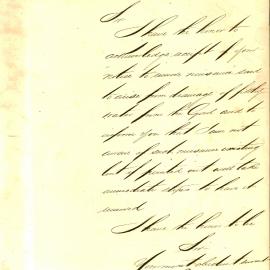 Sir
I have the honor to
acknowledge receipt of your
notice to remove nuisance said
to arise from drainage of filthy
water from the Yard and to
inform you that I am not
aware of such nuisance existing
but if pointed out will take
immediate steps to have it
removed
I have the honor to be
Sir
Your most obedient servant